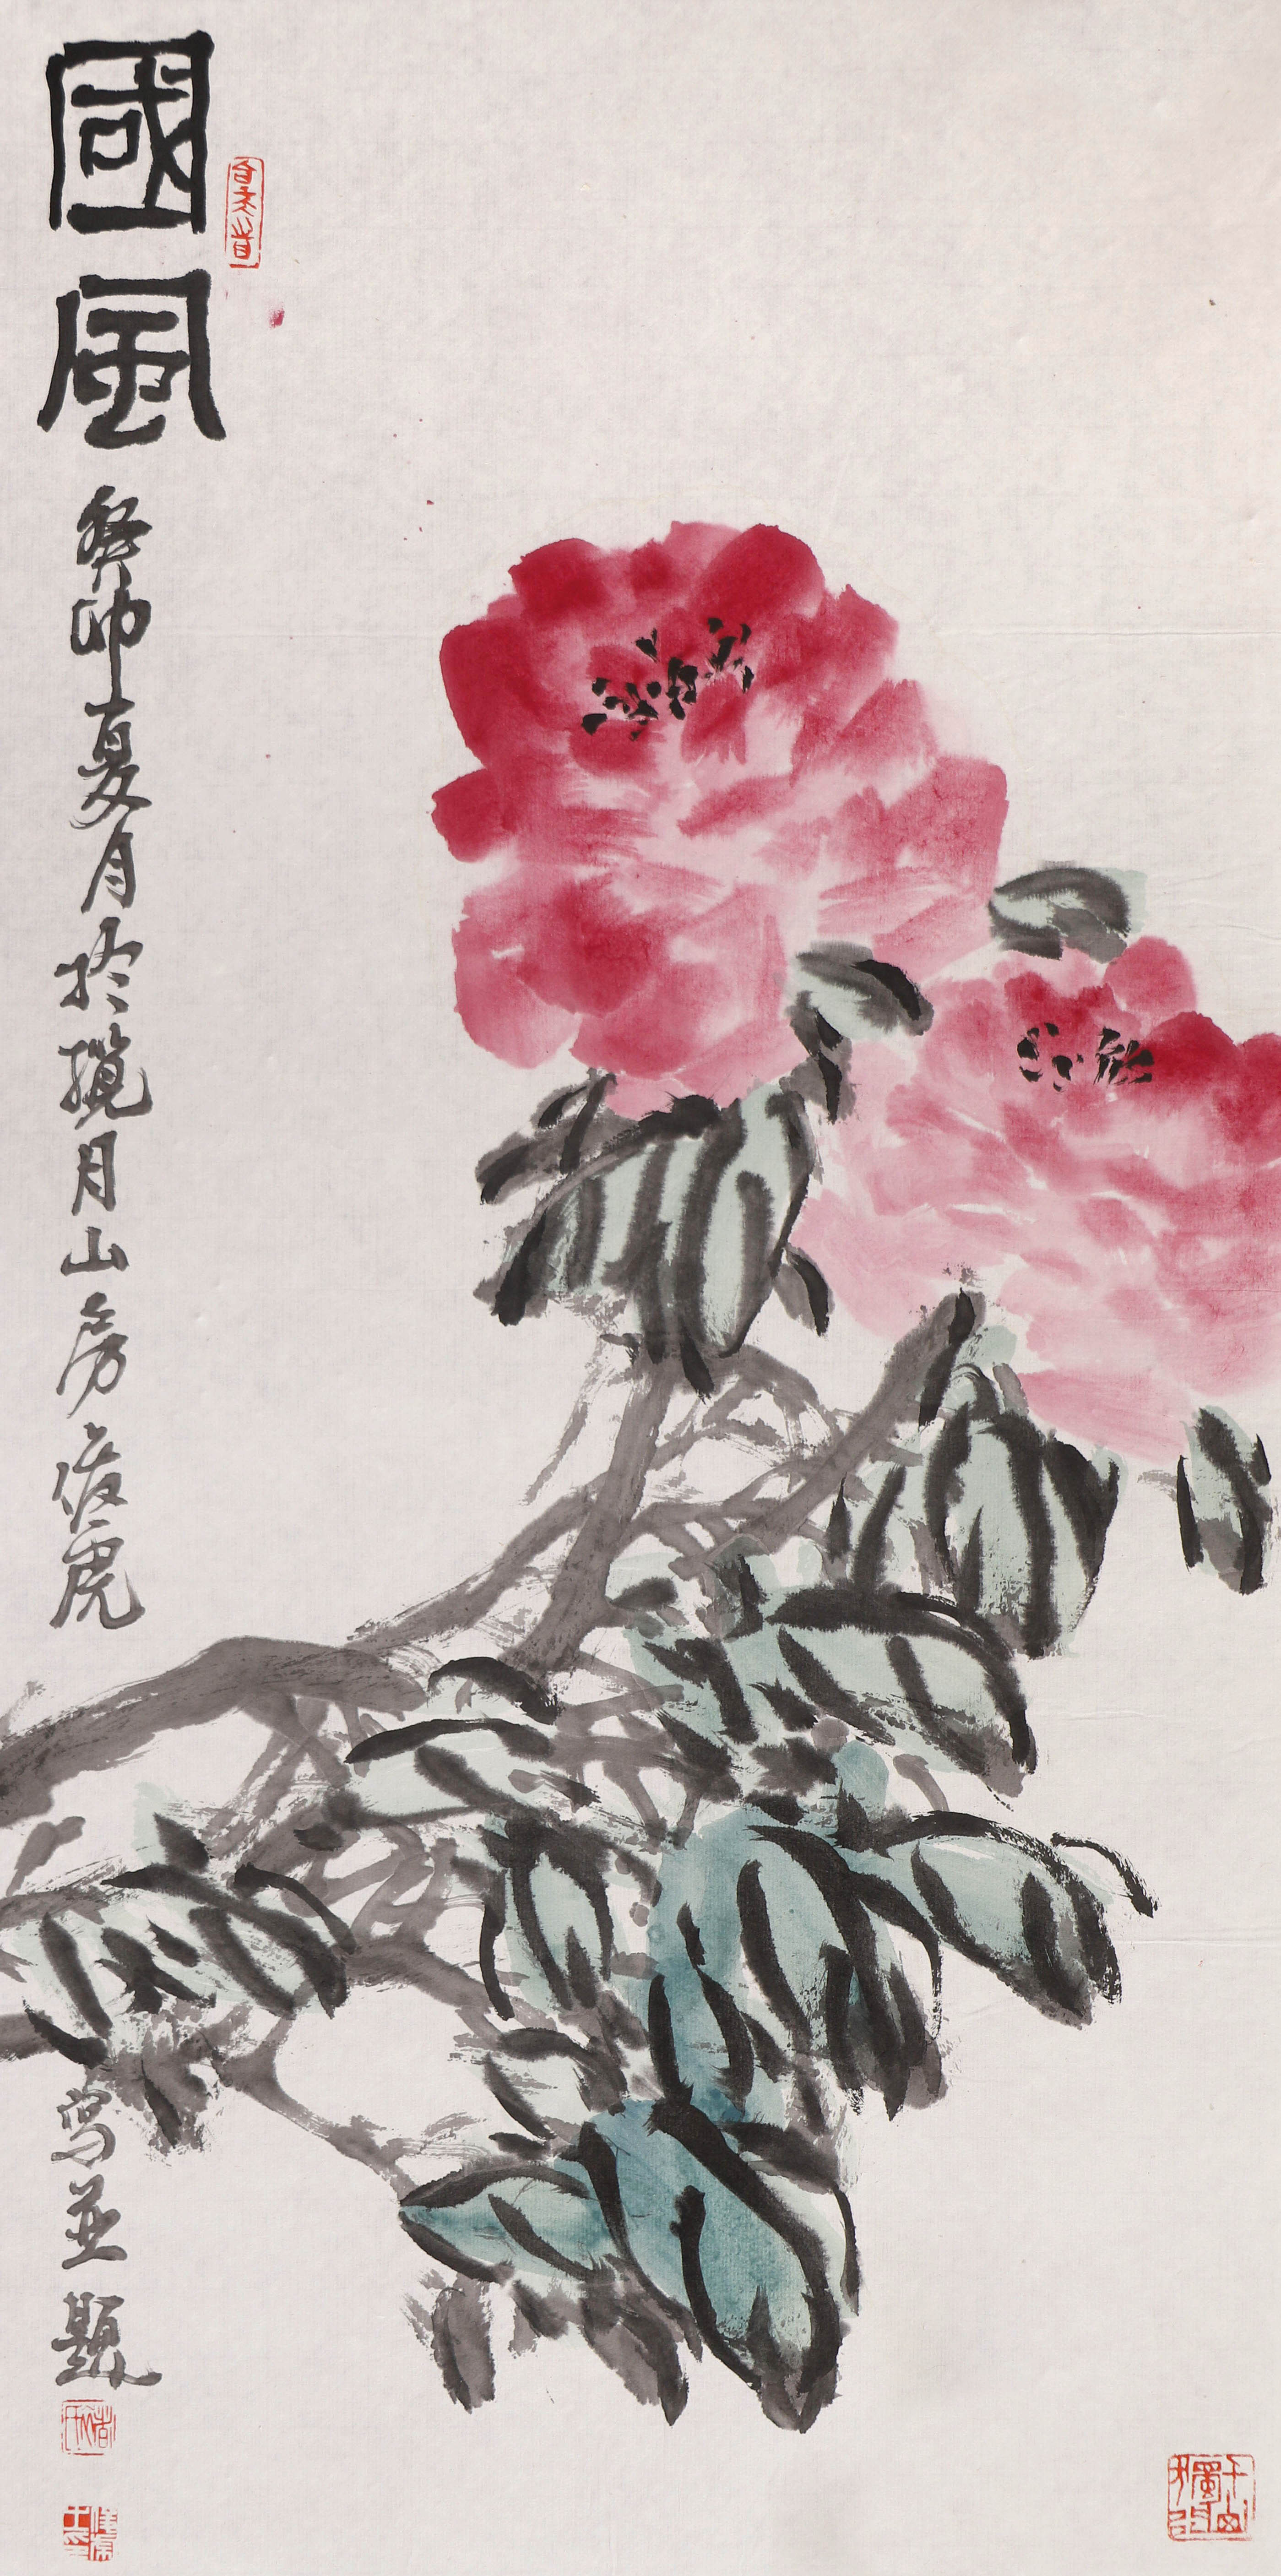 國風
癸卯夏月於攬月山房
虎
寫並題